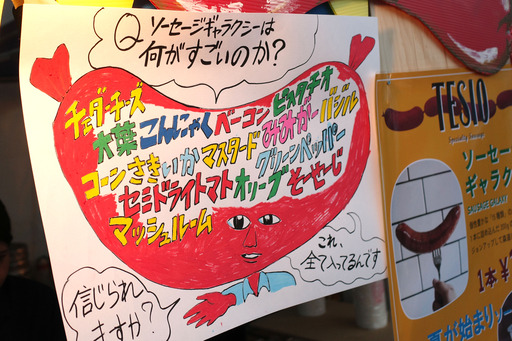 Q ソーセージギャラクシーは
何がすごいのか?
チェダーチーズ
大葉 こんにゃく ベーコン ピスタチオ
コーン さきいか マスタード みみがー バジル
セミドライトマト オリーブ グリーンペッパー
マッシュルーム そーせーじ
これ、
全て入ってるんです
信じられ
ますか?
TESIO
Specialty Sausage
ソーセー
ギャラク
SAUSAGE GALAXY
1本¥
夏が始まりソー